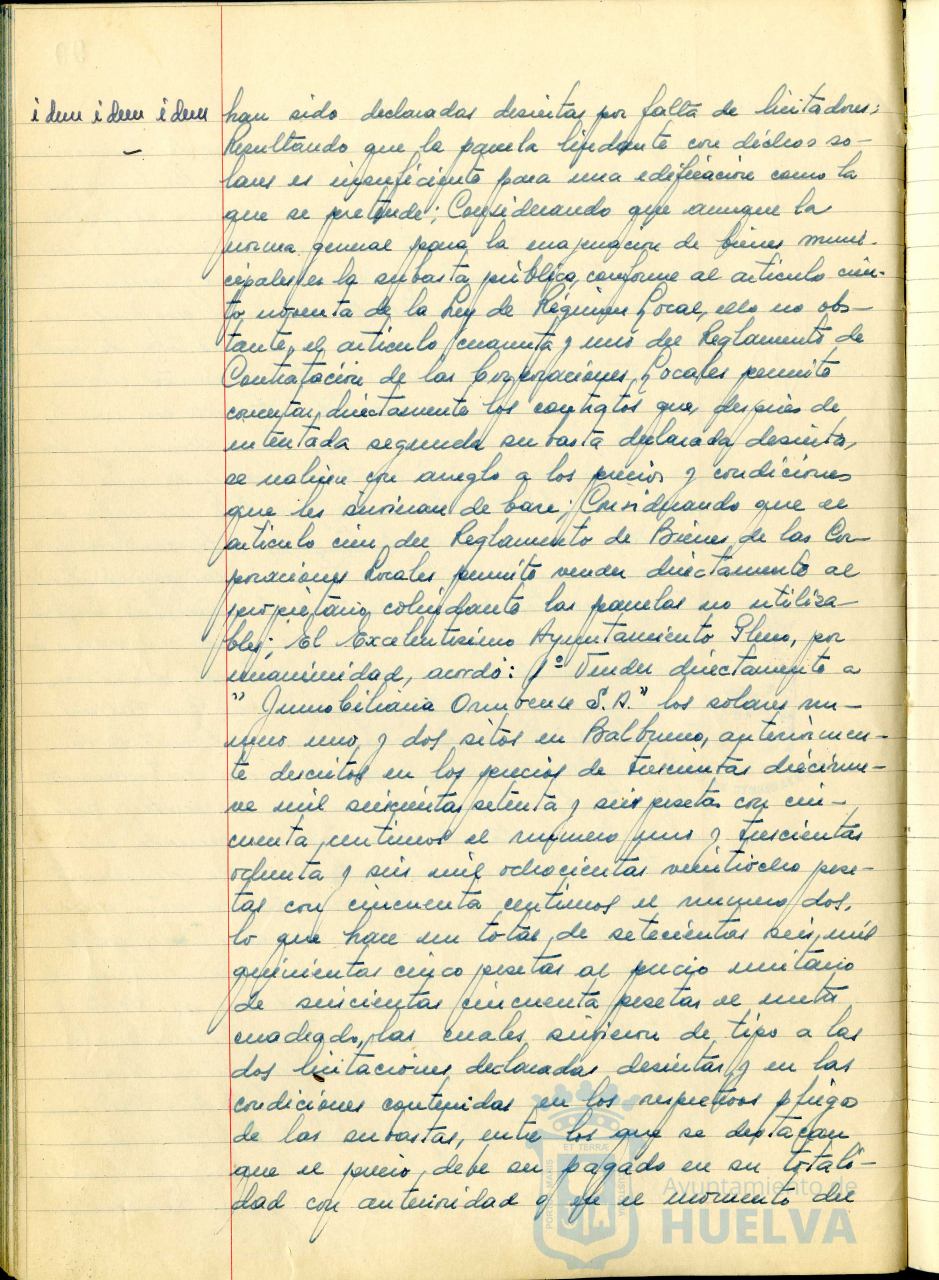 idem idem idem
han sido declaradas desiertas por falta de licitadores;
Resultando que la parcela lindante con dichos so-
lares es insuficiente para una edificación como la
que se pretende; Considerando que aunque la
norma general para la enajenación de bienes muni-
cipales es la subasta pública, conforme al artículo cien-
to noventa de la Ley de Régimen Local, ello no obs-
tante, el artículo cuarenta y uno del Reglamento de
Contratación de las Corporaciones Locales permite
concertar directamente los contratos que, después de
intentada segunda subasta declarada desierta,
se realicen con arreglo a los precios y condiciones
que les sirvieran de base; Considerando que el
artículo cien del Reglamento de Bienes de las Cor-
poraciones Locales permite vender directamente al
propietario colindante las parcelas no utiliza-
bles; El Excelentísimo Ayuntamiento Pleno, por
unanimidad, acordó: 1º Vender directamente a
"Inmobiliaria Onubense S.A." los solares nú-
mero uno y dos sitos en Balbueno, anteriormen-
te descritos en los precios de trescientas diecinue-
ve mil seiscientas setenta y seis pesetas con cin-
cuenta centimos el número uno y trescientas
ochenta y seis mil ochocientas veintiocho pese-
tas con cincuenta centimos el número dos,
lo que hace un total de setecientas seis mil
quinientas cinco pesetas al precio unitario
de seiscientas cincuenta pesetas el metro
cuadrado, las cuales sirvieron de tipo a las
dos licitaciones declaradas desiertas y en las
condiciones contenidas en los respectivos pliegos
de las subastas, entre los que se destacan
que el precio debe ser pagado en su totali-
dad con anterioridad o en el momento del
ET TERRÆ
PORTUS MARIS
Ayuntamiento de
HUELVA